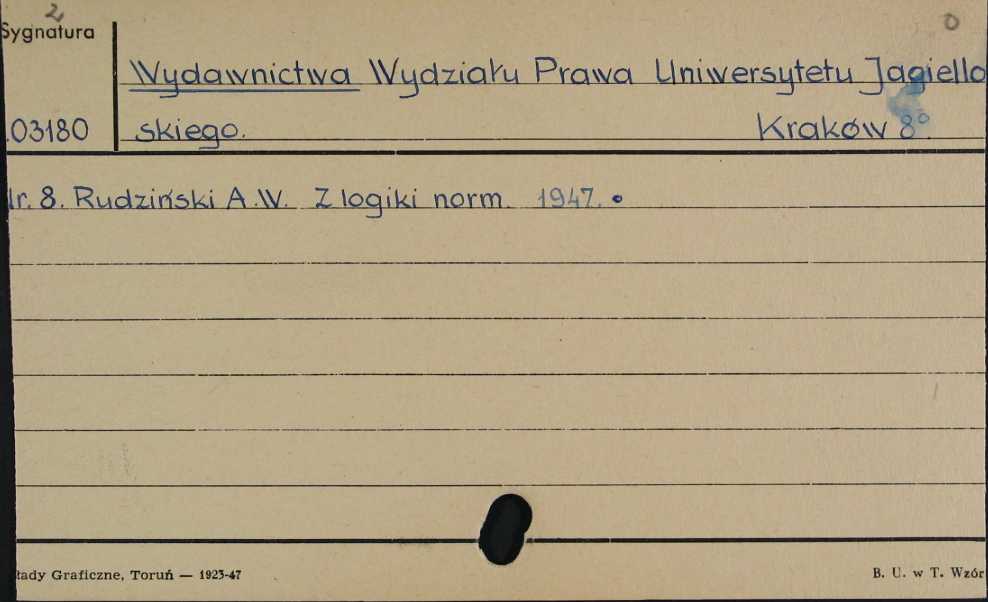 2 0
Sygnatura
Wydawnictwa Wydziału Prawa Uniwersytetu Jagiello
03180 skiego. Kraków 8°.
Nr. 8. Rudziński A.W. Z logiki norm. 1947.
łady Graficzne, Toruń — 1923-47 B. U. w T. Wzór